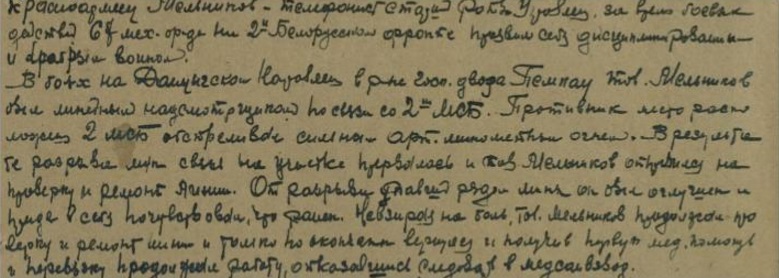 Красноармеец Мельников - телефонист штабной роты Управлен. за время боевых
действий 6 гв. мех. бр-да на 2м Белорусском фронте проявил себя дисциплинированным
и храбрым воином.
В боях на Данцигском направлен в р-не гос. двора Темпау тов. Мельников
был линейным надсмотрщиком по связи со 2м МСБ. Противник место распо
ложен 2 МСБ обстреливал сильным арт. минометным огнем. В результа
те разрыва мин связь на участке прервалась и тов Мельников отправился на
проверку и ремонт линии. От разрыва упавшей рядом мины он был оглушен и
придя в себя почувствовал, что ранен. Невзирая на боль, тов. Мельников продолжал про
верку и ремонт линии и только по окончании вернулся и получив первую мед. помощь
и перевязку продолжал работу, отказавшись следовать в медсанвзвод.